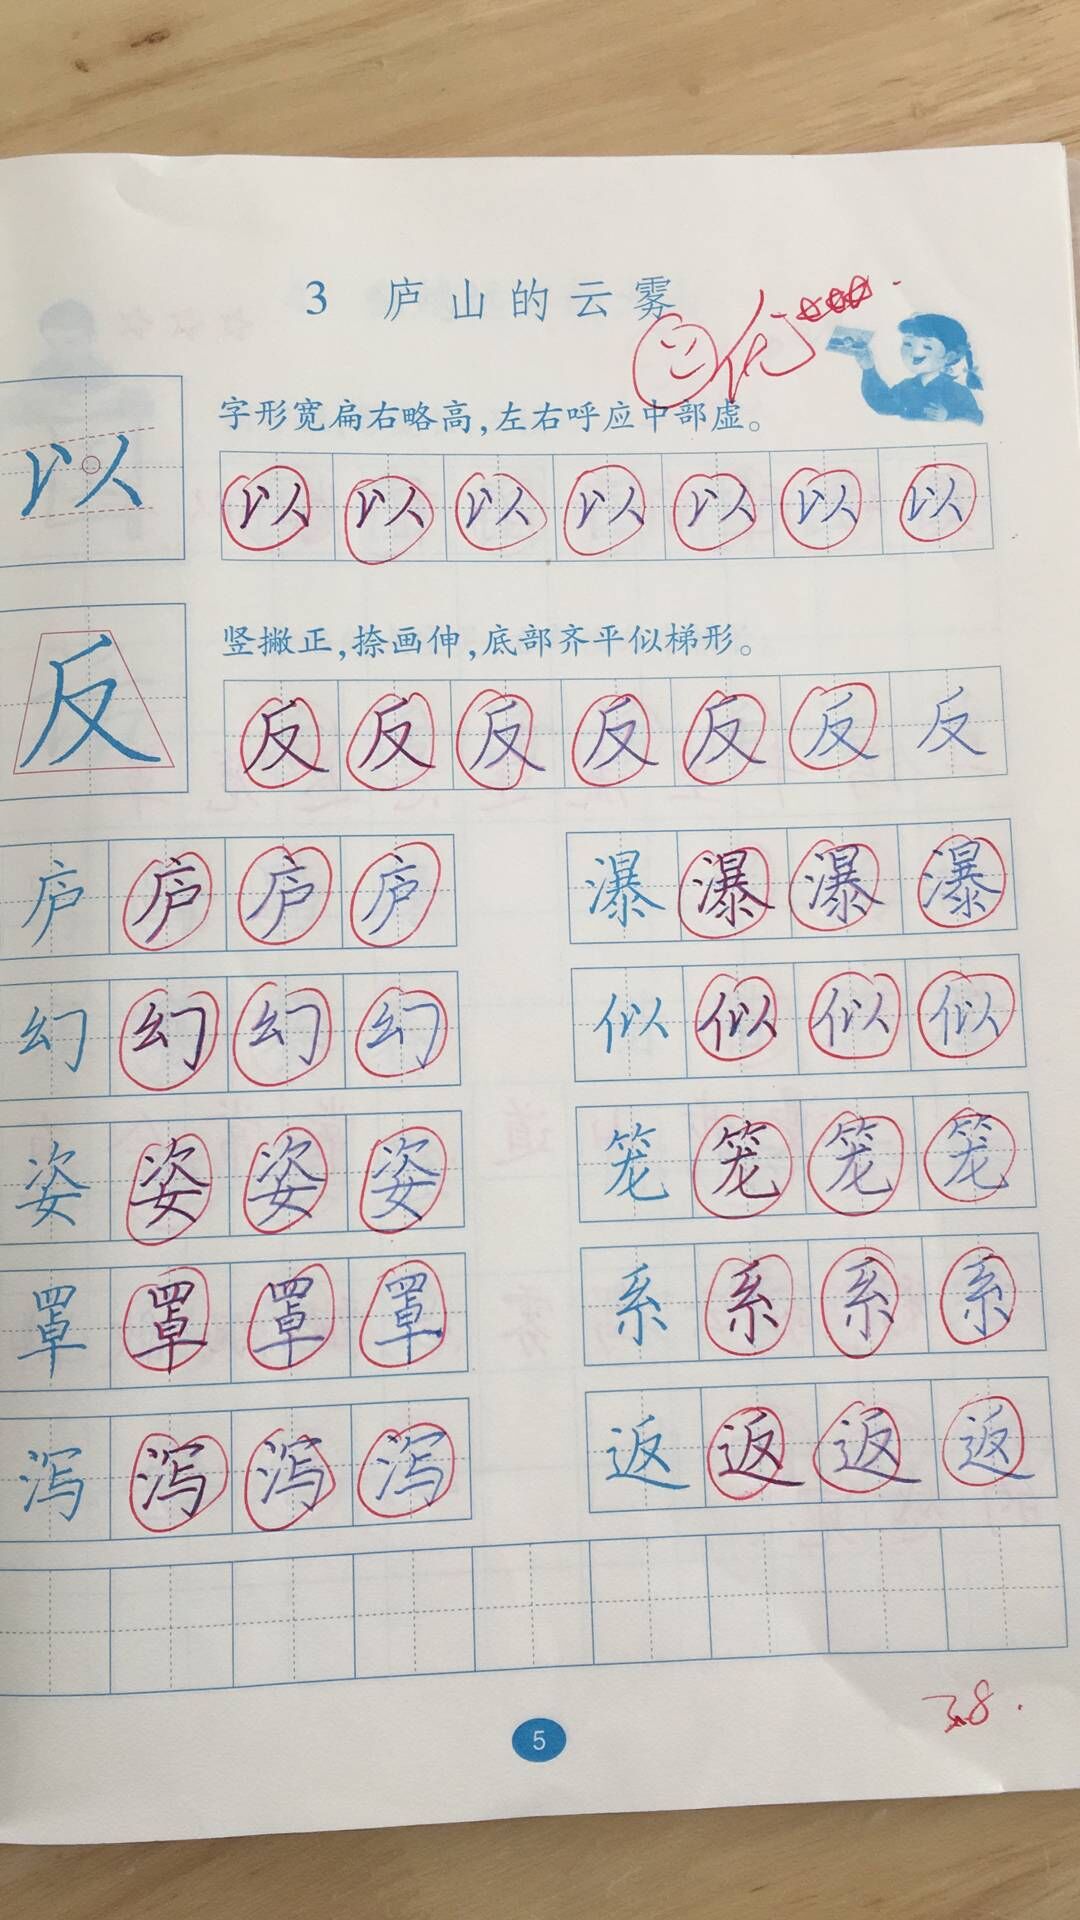 3 庐山的云雾
优
字形宽扁右略高,左右呼应中部虚。
以 以 以 以 以 以 以 以
竖撇正,捺画伸,底部齐平似梯形。
反 反 反 反 反 反 反 反
庐 庐 庐 庐 瀑 瀑 瀑 瀑
幻 幻 幻 幻 似 似 似 似
姿 姿 姿 姿 笼 笼 笼 笼
罩 罩 罩 罩 系 系 系 系
泻 泻 泻 泻 返 返 返 返
3.8.
5